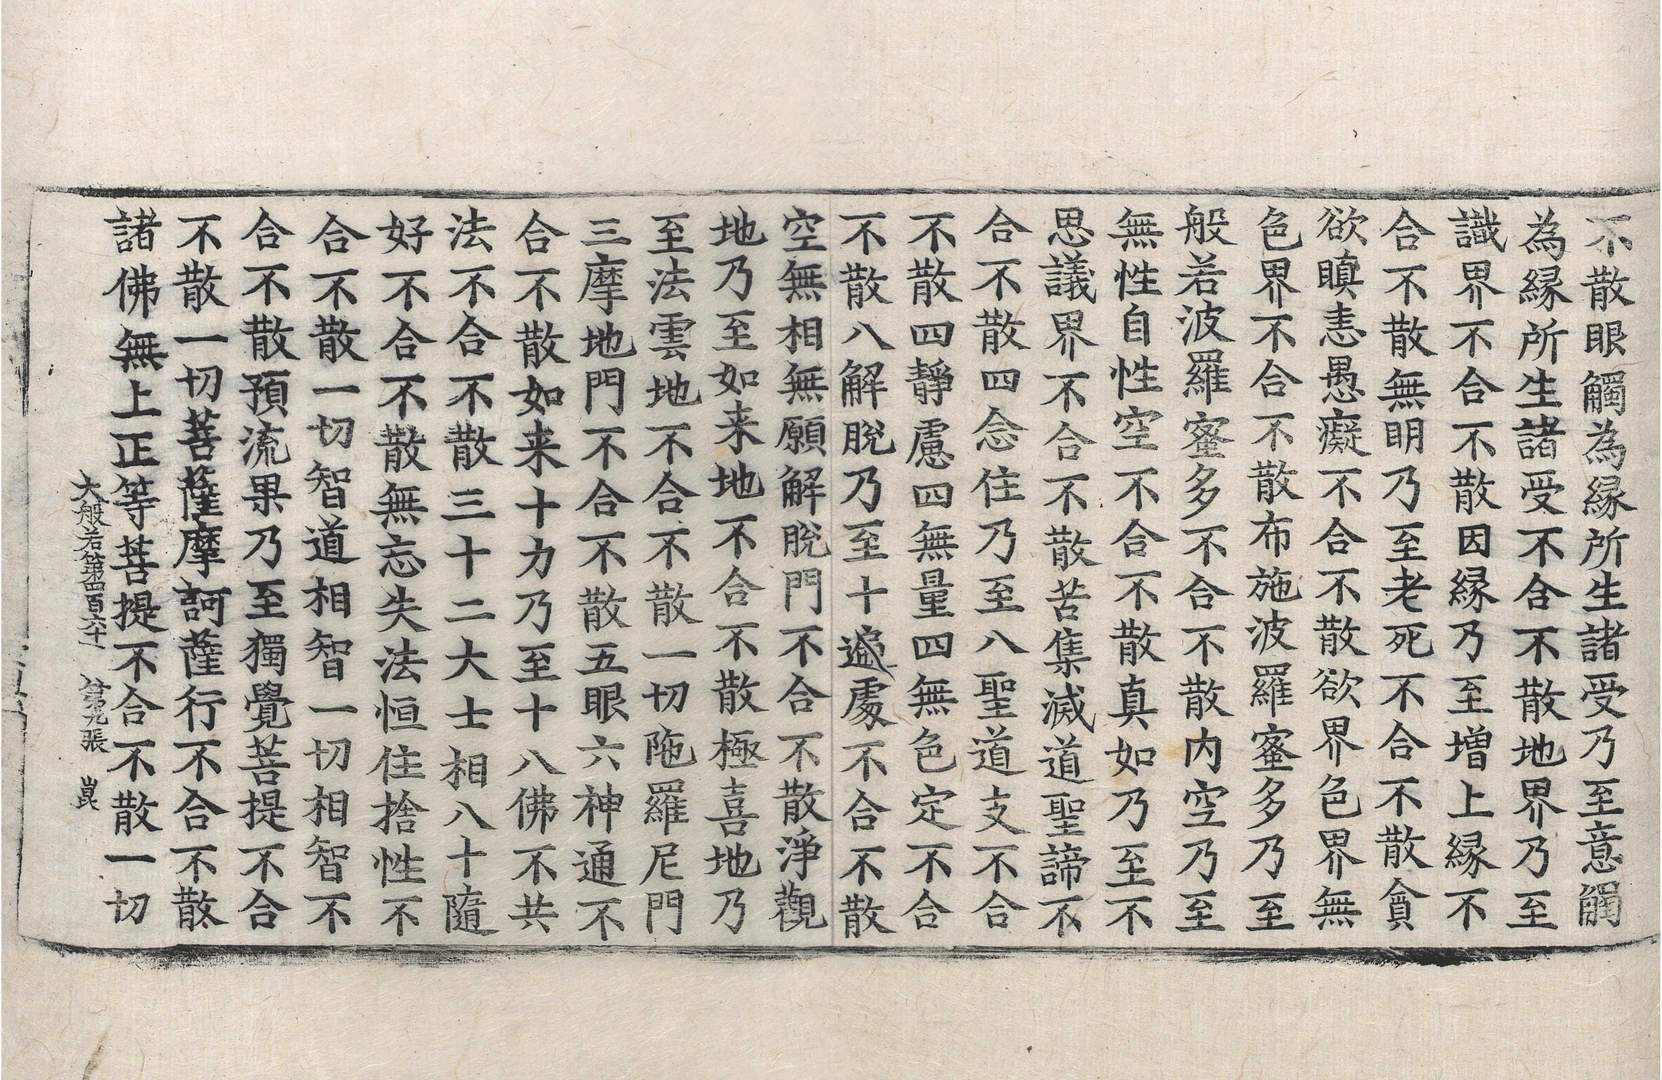 不散眼觸為緣所生諸受乃至意觸
為緣所生諸受不合不散地界乃至
識界不合不散因緣乃至增上緣不
合不散無明乃至老死不合不散貪
欲瞋恚愚癡不合不散欲界色界無
色界不合不散布施波羅蜜多乃至
般若波羅蜜多不合不散內空乃至
無性自性空不合不散真如乃至不
思議界不合不散苦集滅道聖諦不
合不散四念住乃至八聖道支不合
不散四靜慮四無量四無色定不合
不散八解脫乃至十遍處不合不散
空無相無願解脫門不合不散淨觀
地乃至如来地不合不散極喜地乃
至法雲地不合不散一切陁羅尼門
三摩地門不合不散五眼六神通不
合不散如来十力乃至十八佛不共
法不合不散三十二大士相八十隨
好不合不散無忘失法恒住捨性不
合不散一切智道相智一切相智不
合不散預流果乃至獨覺菩提不合
不散一切菩薩摩訶薩行不合不散
諸佛無上正等菩提不合不散一切
大般若第四百六十一 第九張 崑